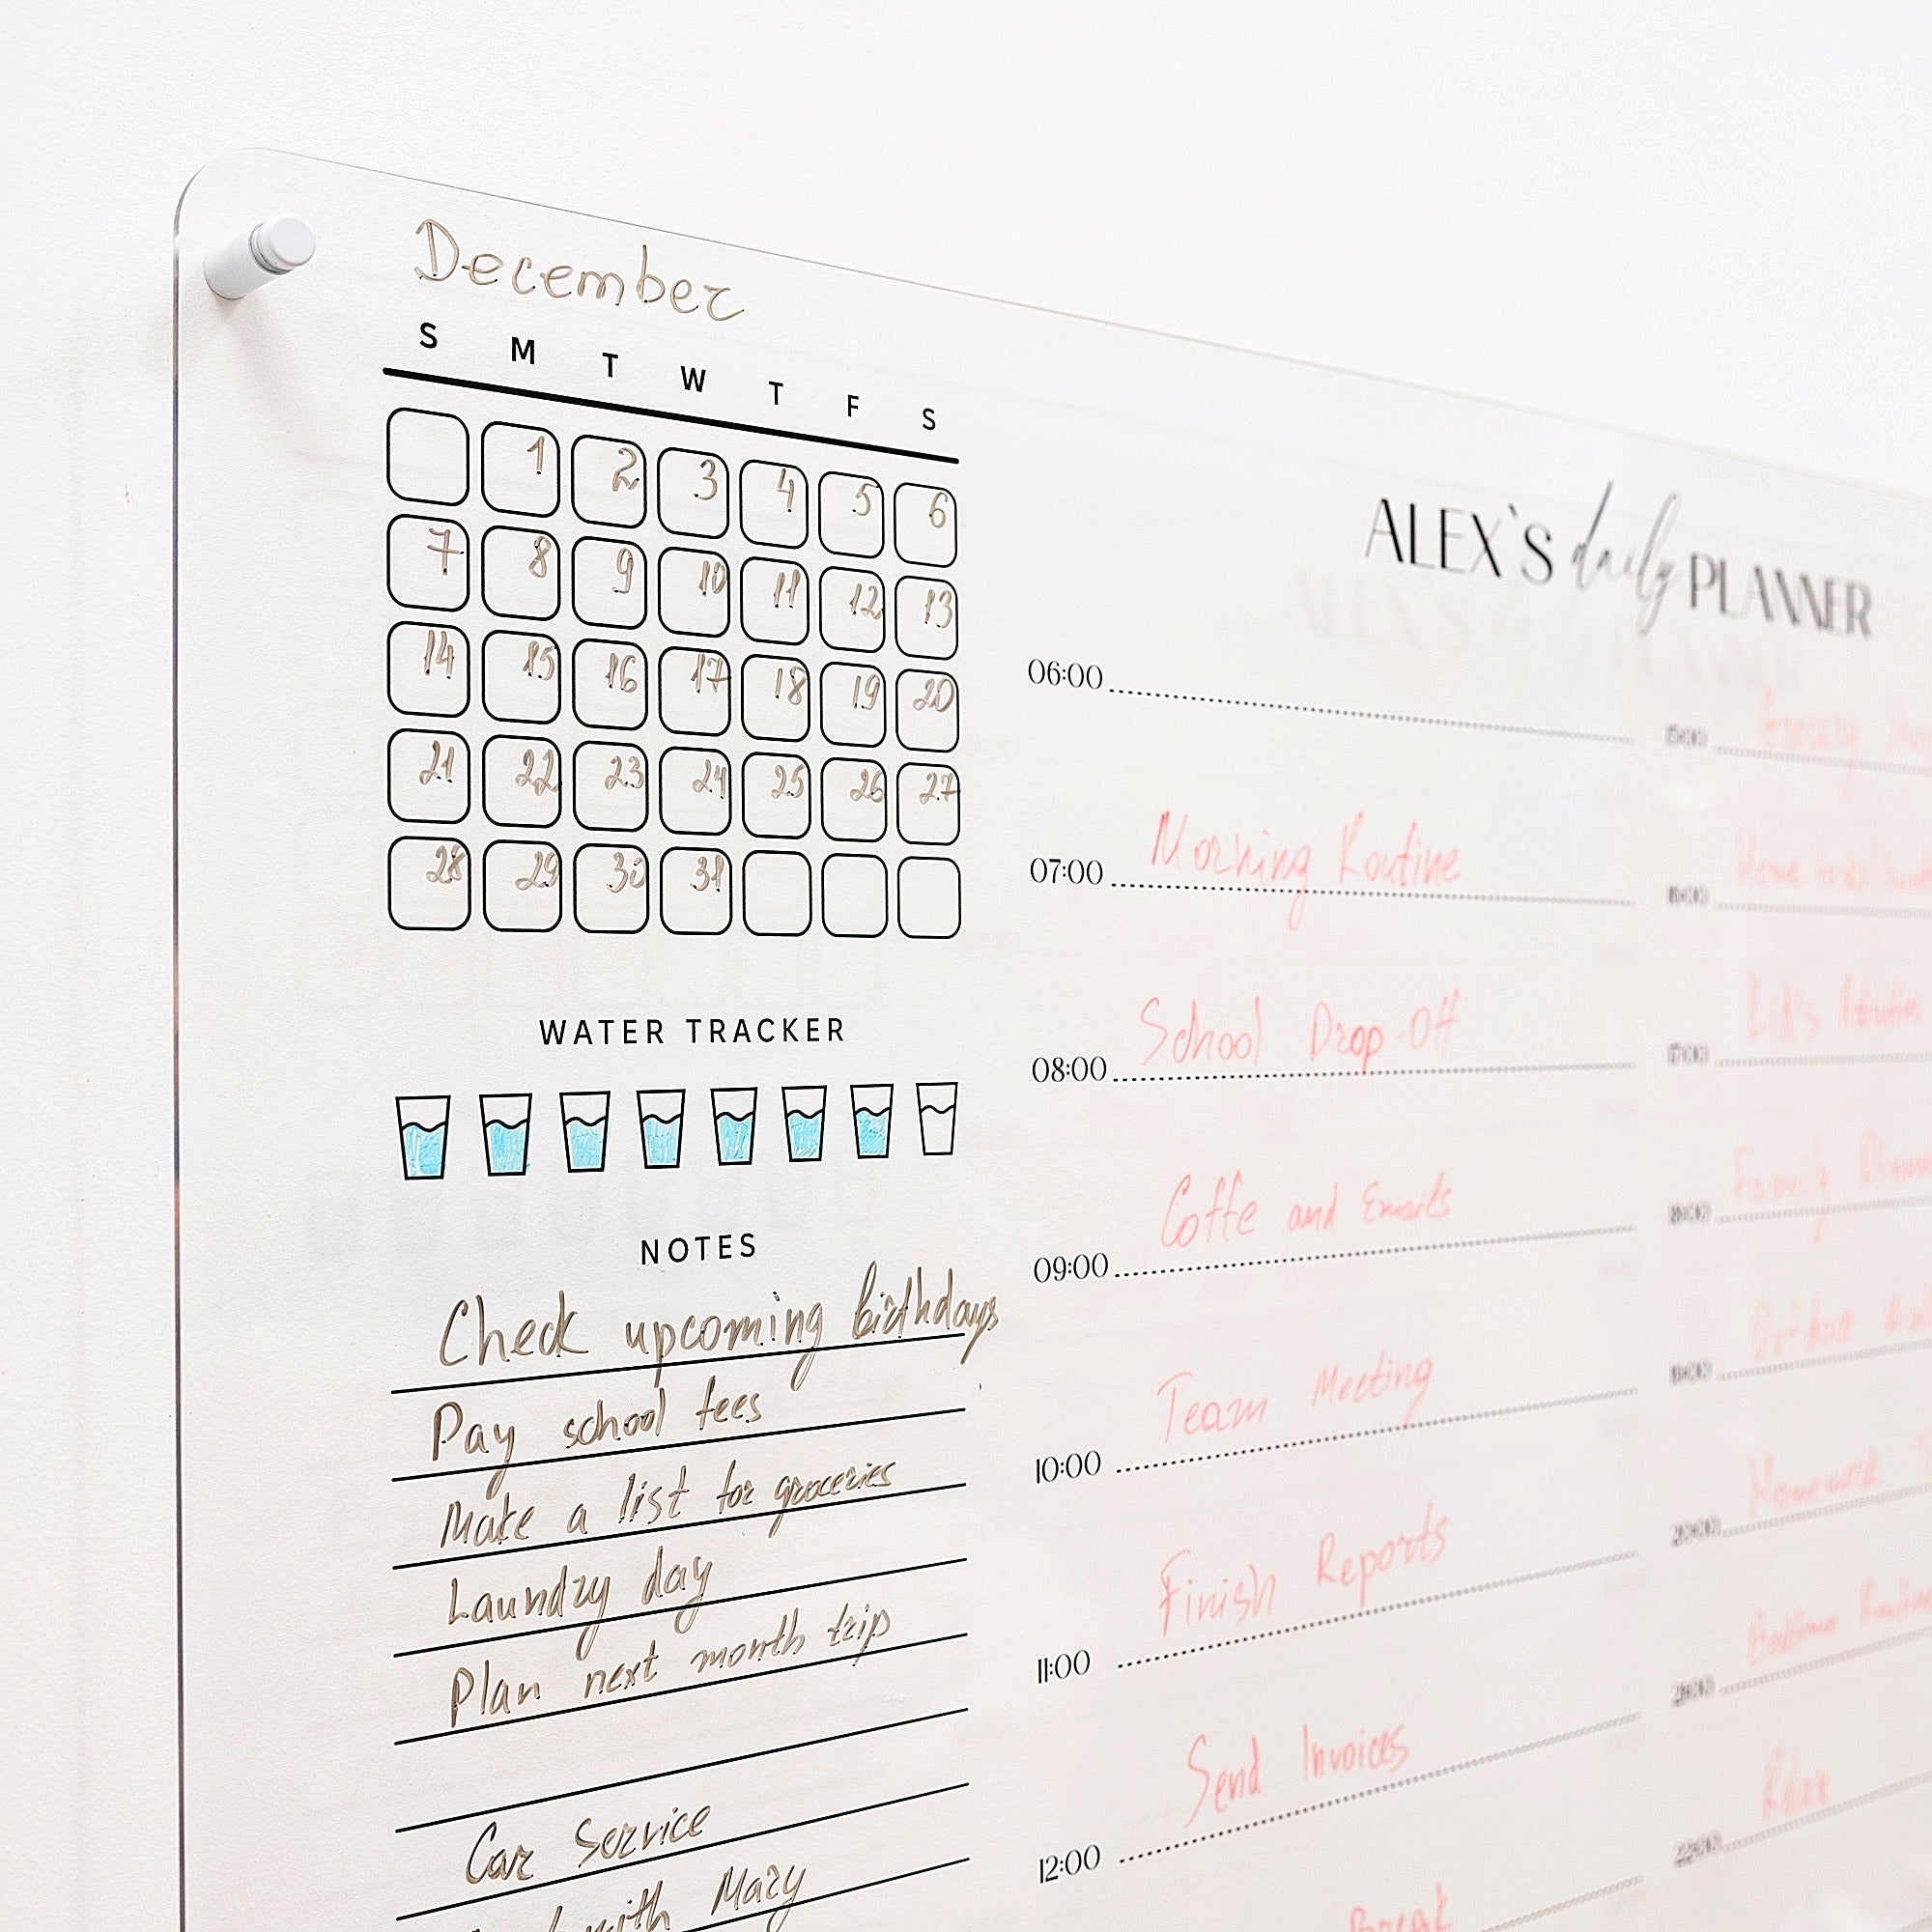 December
S M T W T F S
1 2 3 4 5 6
7 8 9 10 11 12 13
14 15 16 17 18 19 20
21 22 23 24 25 26 27
28 29 30 31
WATER TRACKER
NOTES
Check upcoming birthdays
Pay school fees
Make a list for groceries
Laundry day
Plan next month trip
Car Service
with Mary
ALEX`S daily PLANNER
06:00
07:00 Morning Routine
08:00 School Drop-Off
09:00 Coffe and Emails
10:00 Team Meeting
11:00 Finish Reports
12:00 Send Invoices
Break
15:00 Grocery
16:00 Home
17:00
18:00 Family
19:00
20:00 Homework
21:00 Bedtime Routine
22:00 Relax